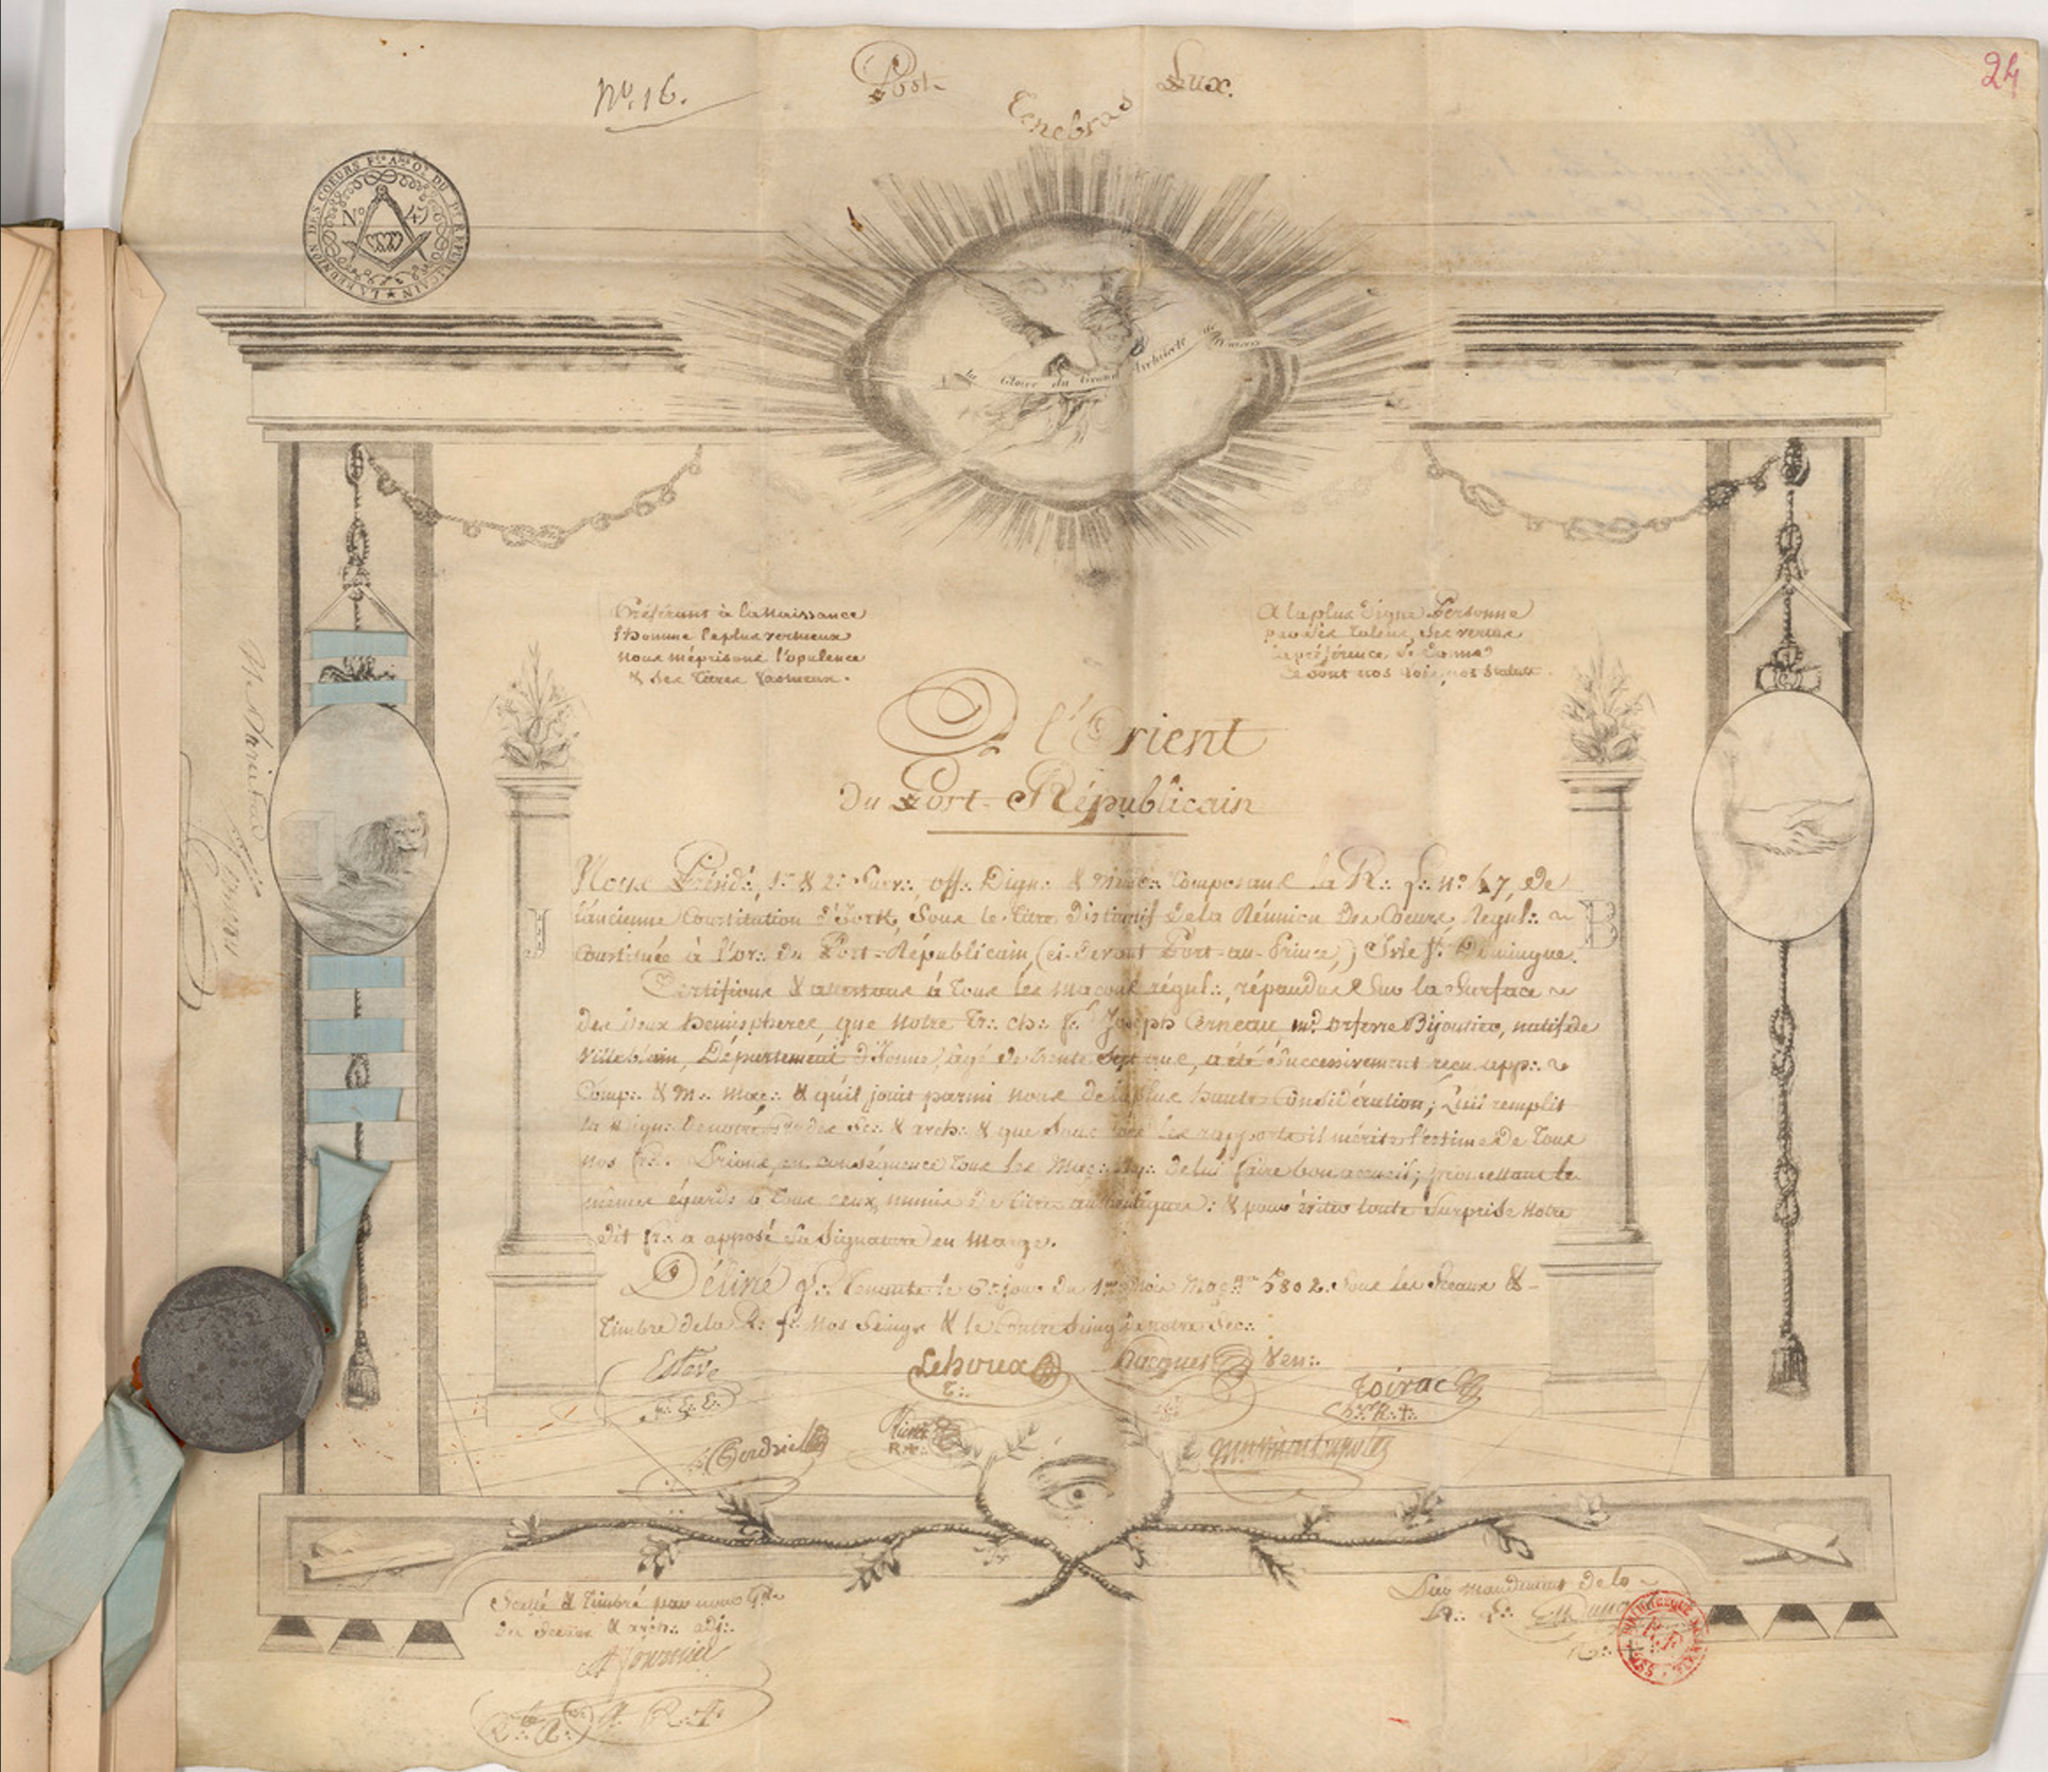 Nº. 16.
Post
Tenebras
Lux.
24
LA REUNION DES COEURS F. A L'O. DU PT. REPUBLICAIN
Nº 47
la Gloire du Grand Architecte de l'Univers
Préférant à la Naissance
l'homme le plus vertueux
nous méprisons l'opulence
& les titres fastueux.
A la plus digne Personne
par ses talens, ses vertus
la préférence se donne
Ce sont nos Lois, nos Statuts.
A l'Orient
Du Port-Républicain
Nous Présid∴, 1er & 2d Surv∴, Off∴ Dign∴ & Memb∴ Composant la R∴ L∴ nº 47, de
l'ancienne Constitution d'York, Sous le titre Distinctif de la Réunion des Coeurs, Régul∴
Constituée à l'or∴ du Port-Républicain, (ci-devant Port-au-Prince,) Isle St. Domingue.
Certifions & attestons à tous les maçons régul∴, répandus Sur la Surface
des deux hemispheres, que Notre Tr∴ Ch∴ f∴ Joseph Cerneau, md. orfevre Bijoutier, natif de
Villeblevin, Département d'Yonne, âgé de trente Sept ans, a été Successivement reçu app∴
Comp∴ & M∴ Maç∴ & qu'il jouit parmi nous de la plus haute Considération; qu'il remplit
la Dign∴ de notre Gde des Sc∴ & arch∴ & que Sous tous les rapports il mérite l'estime de tous
nos fr∴. Prions, en conséquence tous les Maç∴ Rég∴ de lui faire bon accueil; promettant les
mêmes égards à tous ceux munis de titres authentiques: & pour éviter toute Surprise Notre
dit fr∴ a apposé Sa Signature en Marge.
Délivré L∴ tenante le 6e jour du 1er Mois Maç∴ 5802. Sous les Sceaux &
Timbre de la R∴ L∴ Nos Seings & le Contre Seing de notre Sec∴
J
B
Ne Varietur
Cerneau
Esteve
Lehoux
T∴
Hacquet Ven∴
Toirac
R∴
Scellé & Timbré par nous Gde
des Sceaux & arch∴ adj∴
Fournier
Par mandement de la
R∴ L∴
BIBLIOTHEQUE
MSS